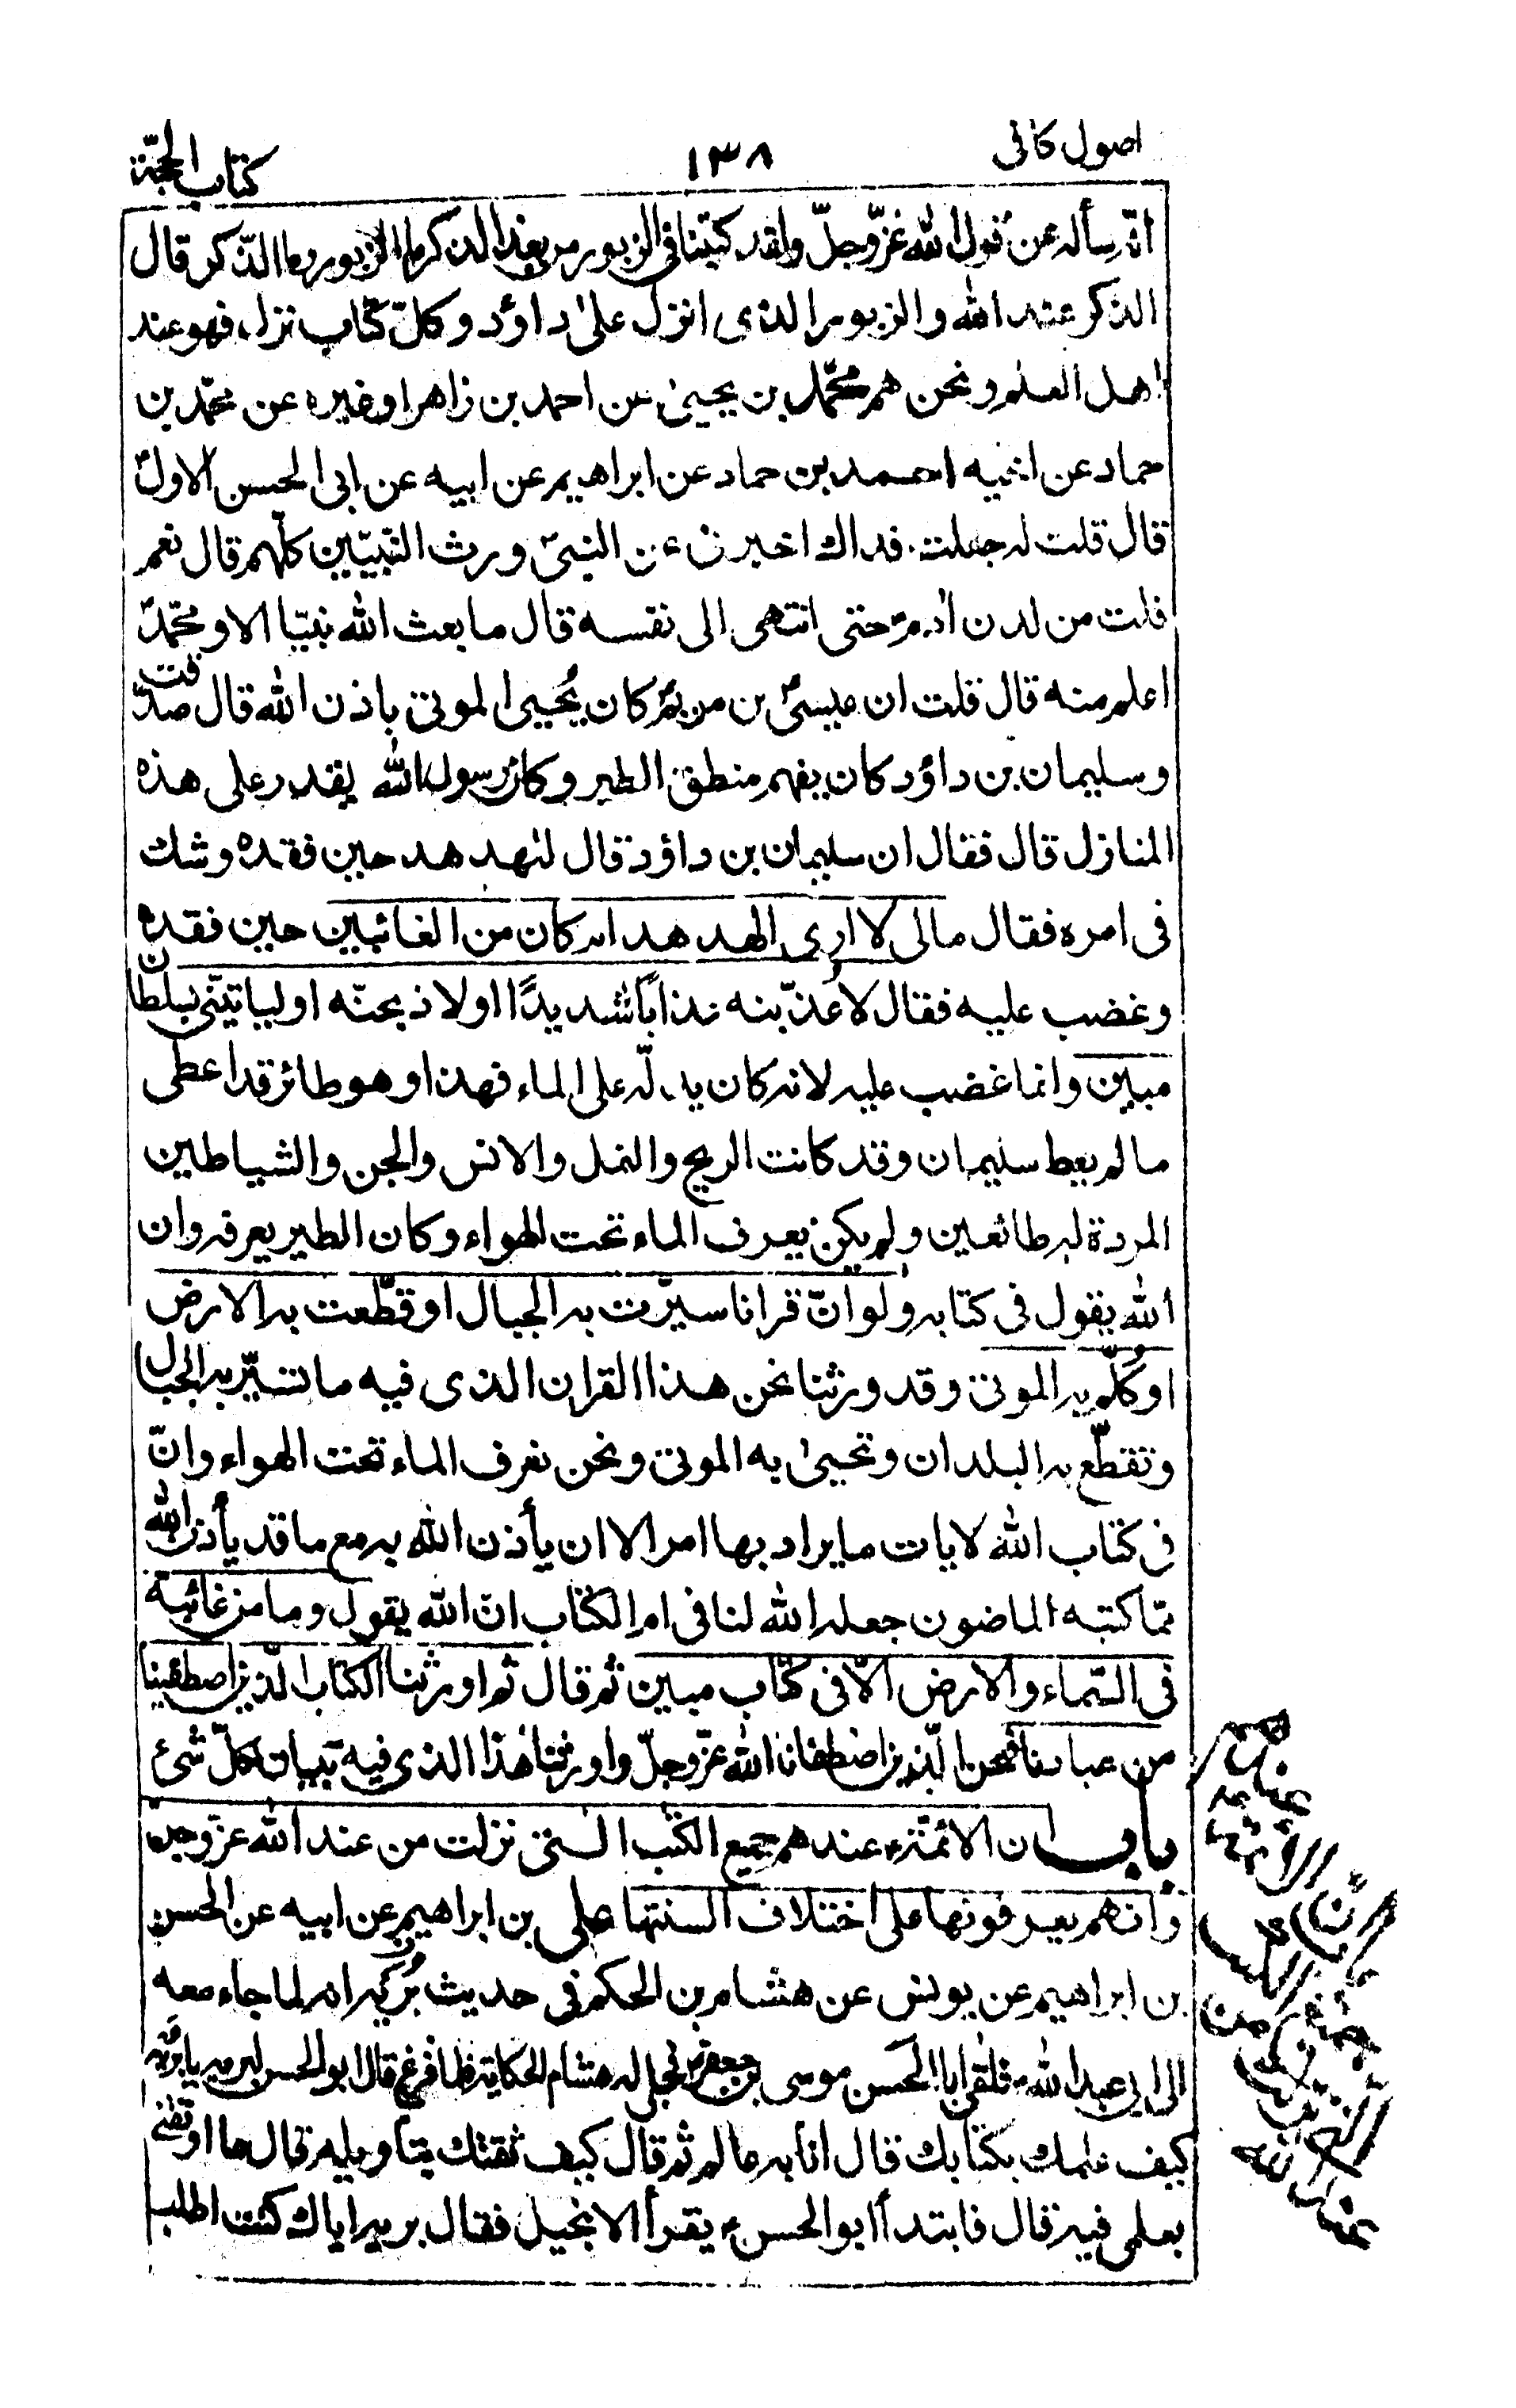 اصول كافى
١٣٨
كتاب الحجّة
انّه سأله عن قول الله عزّ وجلّ ولقد كتبنا فى الزبور من بعد الذكر ما الزبور وما الذّكر قال
الذكر عند الله والزبور الذى انزل علىٰ داؤد وكلّ كتاب نزل فهو عند
اهل العلم ونحن هم محمّد بن يحيىٰ عن احمد بن زاهر او غيره عن محمّد بن
حماد عن اخيه احمد بن حماد عن ابراهيم عن ابيه عن ابى الحسن الاولؑ
قال قلت له جعلت فداك اخبرنى عن النبىّ ورث النّبيّين كلّهم قال نعم
قلت من لدن اٰدمؑ حتى انتهى الى نفسه قال ما بعث الله نبيّا الا و محمّدؐ
اعلم منه قال قلت ان عيسىؑ بن مريمؑ كان يُحيى الموتى باذن الله قال صدّقت
وسليمان بن داؤد كان يفهم منطق الطير وكان رسول الله يقدر على هذه
المنازل قال فقال ان سليمان بن داؤد قال للهدهد حين فقده وشك
فى امره فقال مالى لا ارى الهدهد ام كان من الغائبين حين فقده
وغضب عليه فقال لاعذّبنه عذابًا شديدًا اولا ذبحنّه او ليأتينّى بسلطان
مبين وانما غضب عليه لانه كان يدلّه على الماء فهذا وهو طائر قد اعطى
ما لم يعط سليمان وقد كانت الريح والنمل والانس والجن والشياطين
المردة له طائعين ولم يكن يعرف الماء تحت الهواء وكان الطير يعرفه وان
الله يقول فى كتابه ولو انّ قرانا سيّرت به الجبال او قطّعت به الارض
او كُلّم به الموتى وقد ورثنا نحن هذا القران الذى فيه ما تسيّر به الجبال
وتقطّع به البلدان وتحيىٰ به الموتى ونحن نعرف الماء تحت الهواء وانّ
فى كتاب الله لايات ما يراد بها امر الا ان يأذن الله به مع ما قد يأذن الله
ممّا كتبه الماضون جعله الله لنا فى ام الكتاب انّ الله يقول وما من غائبة
فى السّماء والارض الّا فى كتاب مبين ثم قال ثم اورثنا الكتاب الّذين اصطفينا
من عبادنا فنحن الّذين اصطفانا الله عزّ وجلّ واورثنا هذا الذى فيه تبيان كلّ شئ
باب ان الائمّةؑ عندهم جميع الكتب التى نزلت من عند الله عزّ وجلّ
وانهم يعرفونها على اختلاف السنتها على بن ابراهيم عن ابيه عن الحسن
بن ابراهيم عن يونس عن هشام بن الحكم فى حديث بُريه انه لما جاء معه
الى ابى عبد اللهؑ فلقى ابا الحسن موسى بن جعفرؑ فحكى له هشام الحكاية فلما فرغ قال ابو الحسن لبريه يا بُريه
كيف علمك بكتابك قال انا به عالم ثم قال كيف ثقتك بتأويله قال ما اوثقنى
بعلمى فيه قال فابتدأ ابو الحسنؑ يقرأ الانجيل فقال بريه اياك كنت اطلب